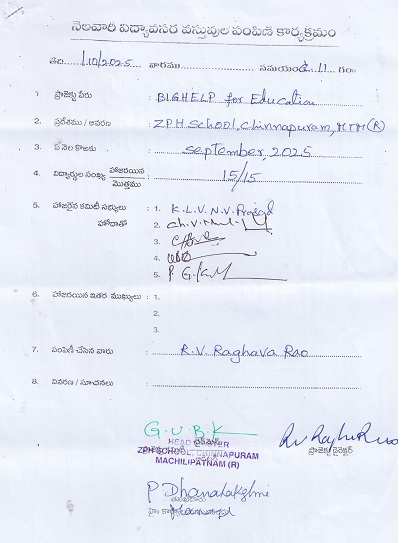 నెలవారీ విద్యావసర వస్తువుల పంపిణి కార్యక్రమం
తేది.....1.10/2025.... వారము............ సమయం ఉ..11.. గం॥
1. ప్రాజెక్టు పేరు : BIGHELP for Education
2. ప్రదేశము / ఆవరణ : ZPH School, Chinnapuram, MTM (R)
3. ఏ నెల కొరకు : September 2025
4. విద్యార్థుల సంఖ్య హాజరయిన / మొత్తము : 15/15
5. హాజరైన కమిటీ సభ్యులు : 1. K.L.V.N.V. Prasad
హోదాతో 2.
3.
4.
5.
6. హాజరయిన ఇతర ముఖ్యులు : 1.
2.
3.
7. పంపిణీ చేసిన వారు : R.V. Raghava Rao
8. వివరణ / సూచనలు :
G.U.B.K
HEAD MASTER
ZPH SCHOOL, CHINNAPURAM
MACHILIPATNAM (R)
ప్రాజెక్టు డైరెక్టర్
P Dhanalakshmi